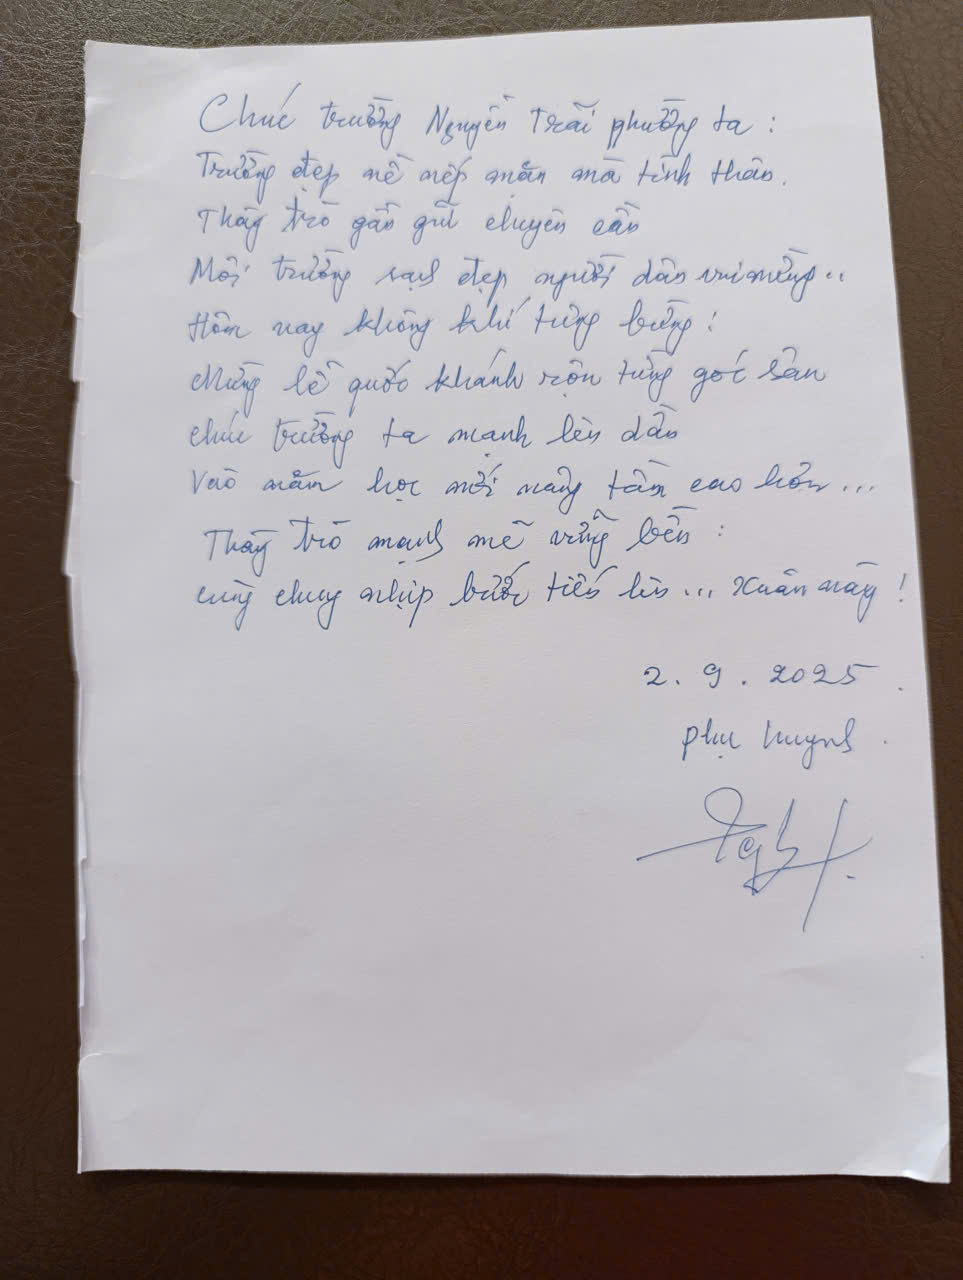 Chúc trường Nguyễn Trãi phường ta :
Trường đẹp nề nếp mặn mà tình thân.
Thầy trò gần gũi chuyên cần
Môi trường sạch đẹp người dân vui mừng..
Hôm nay không khí tưng bừng!
Mừng lễ quốc khánh rộn từng góc sân
Chúc trường ta mạnh lên dần
Vào năm học mới nâng tầm cao hơn...
Thầy trò mạnh mẽ vững bền :
Cùng chung nhịp bước tiến lên... Xuân này !
2.9.2025.
Phụ huynh.